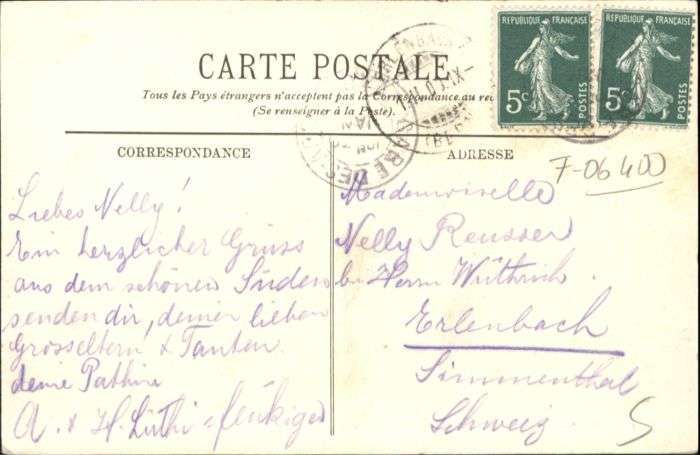 CARTE POSTALE
Tous les Pays étrangers n'acceptent pas la Correspondance au
(Se renseigner à la Poste)
REPUBLIQUE FRANÇAISE
5c
POSTES
REPUBLIQUE FRANÇAISE
5c
POSTES
CORRESPONDANCE
Liebes Nelly!
Ein herzlicher Gruss
aus dem schönen Süden
senden dir, deine lieben
Grosseltern & Tanten
deine Pathin
A. & H. Lüthi-
ADRESSE
7-06400
Mademoiselle
Nelly Reusser
bei Herrn Wüthrich.
Erlenbach
Simmenthal
Schweiz
S